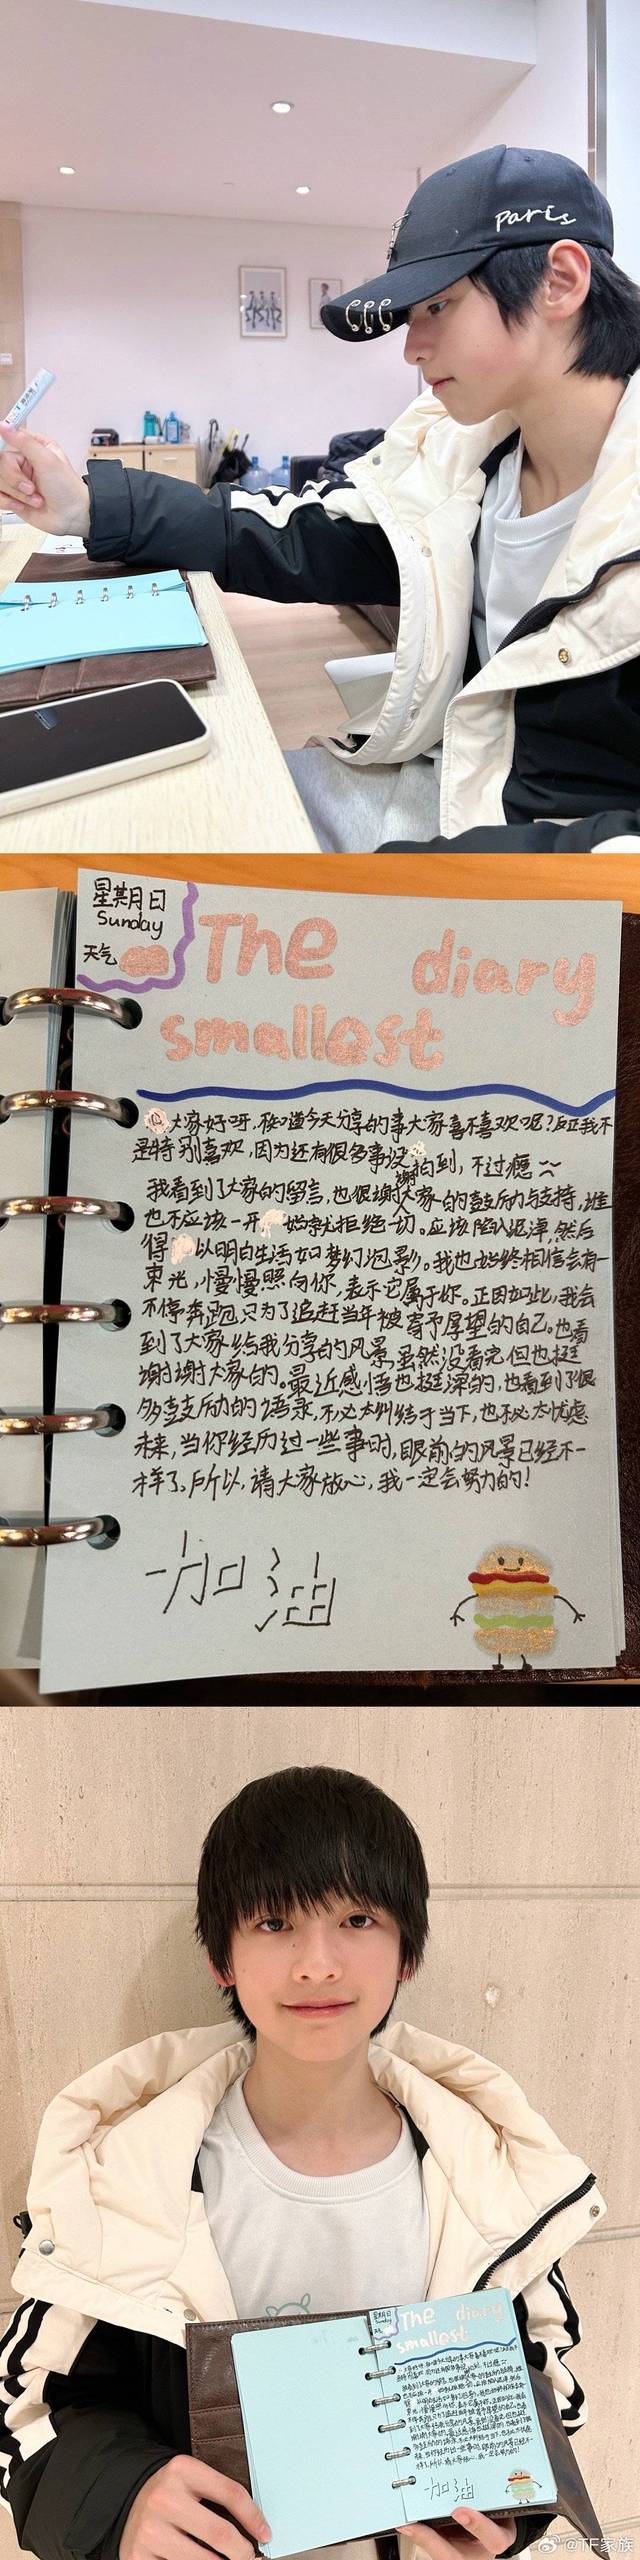 Paris
星期日
Sunday
天气
The diary
smallest
大家好呀,不知道今天分享的事大家喜不喜欢呢?反正我不
是特别喜欢,因为还有很多事没拍到,不过瘾~~
我看到了大家的留言,也很谢谢大家的鼓励与支持,谁
也不应该一开始就拒绝一切。应该陷入泥潭,然后
得以明白生活如梦幻泡影。我也始终相信会有一
束光,慢慢照向你,表示它属于你。正因如此,我会
不停奔跑只为了追赶当年被寄予厚望的自己。也看
到了大家给我分享的风景,虽然没看完但也挺
谢谢大家的。最近感悟也挺深的,也看到了很
多鼓励的语录,不必太纠结于当下,也不必太忧虑
未来,当你经历过一些事时,眼前的风景已经不一
样了。所以,请大家放心,我一定会努力的!
加油
星期日
Sunday
The diary
smallest
加油
@TF家族